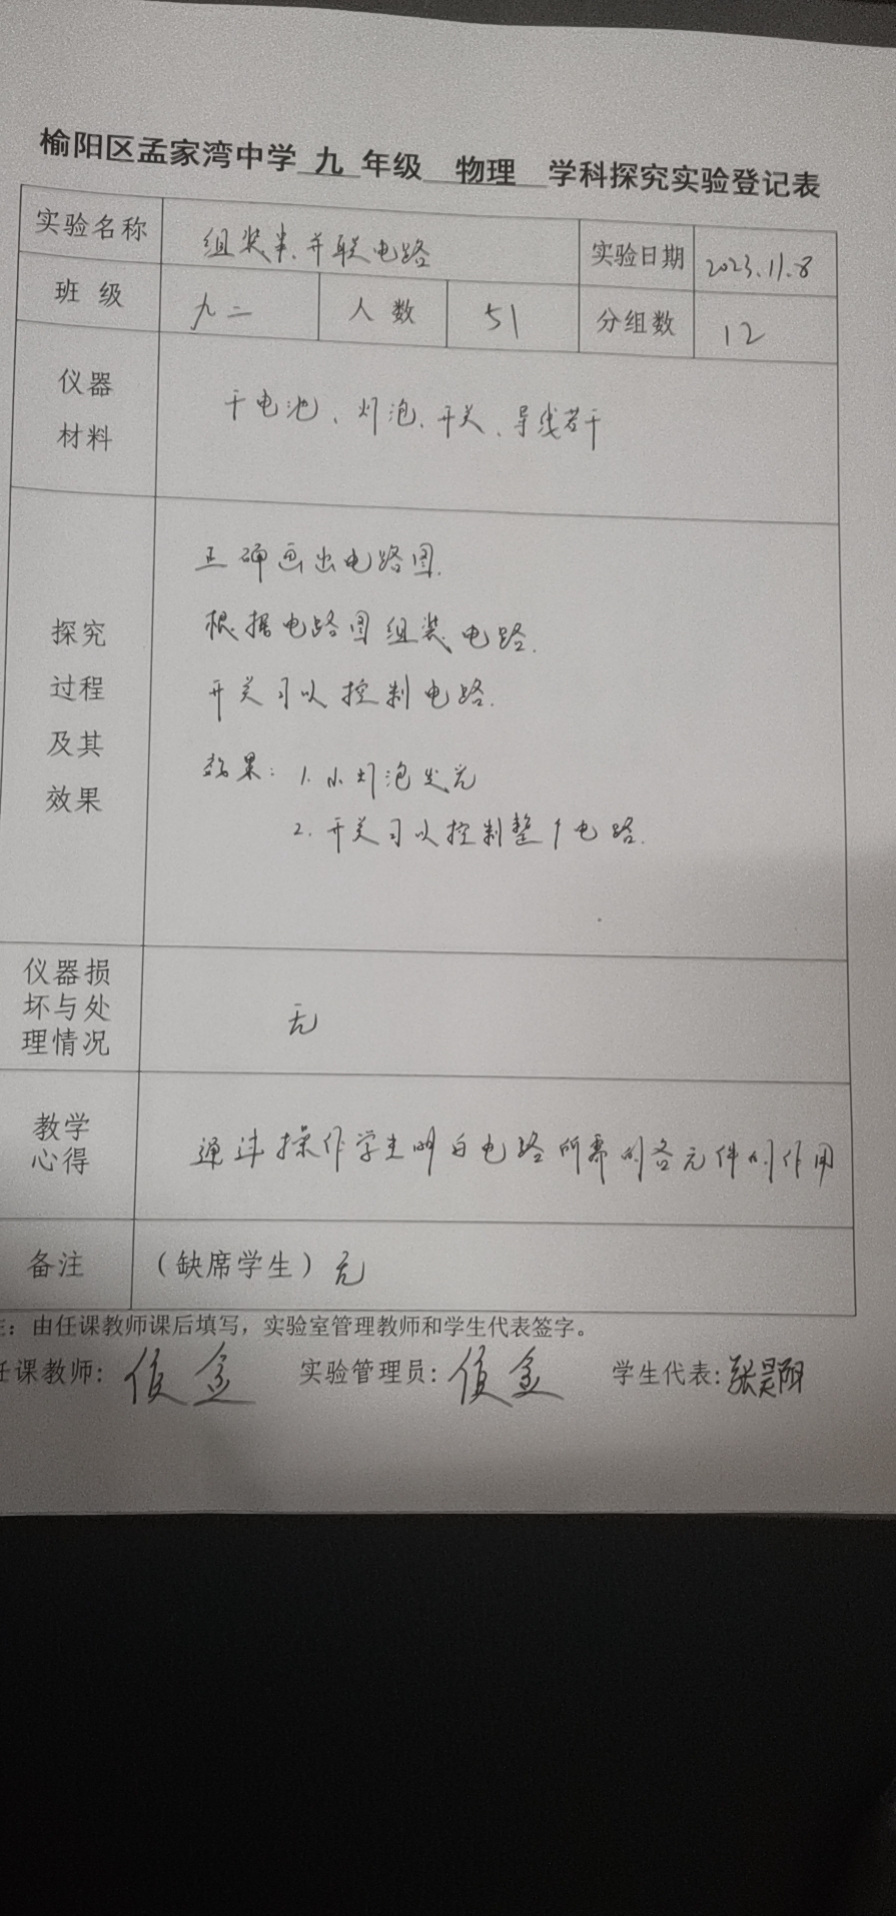 榆阳区孟家湾中学 九 年级 物理 学科探究实验登记表
实验名称 组装串、并联电路 实验日期 2023.11.8
班 级 九二 人 数 51 分组数 12
仪器
材料
干电池、灯泡、开关、导线若干
探究
过程
及其
效果
正确画出电路图.
根据电路图组装电路.
开关可以控制电路.
效果: 1. 小灯泡发光
2. 开关可以控制整个电路.
仪器损
坏与处
理情况
无
教学
心得
通过操作学生明白电路所需的各元件的作用
备注 (缺席学生)无
注:由任课教师课后填写,实验室管理教师和学生代表签字。
任课教师: 实验管理员: 学生代表:张昊阳